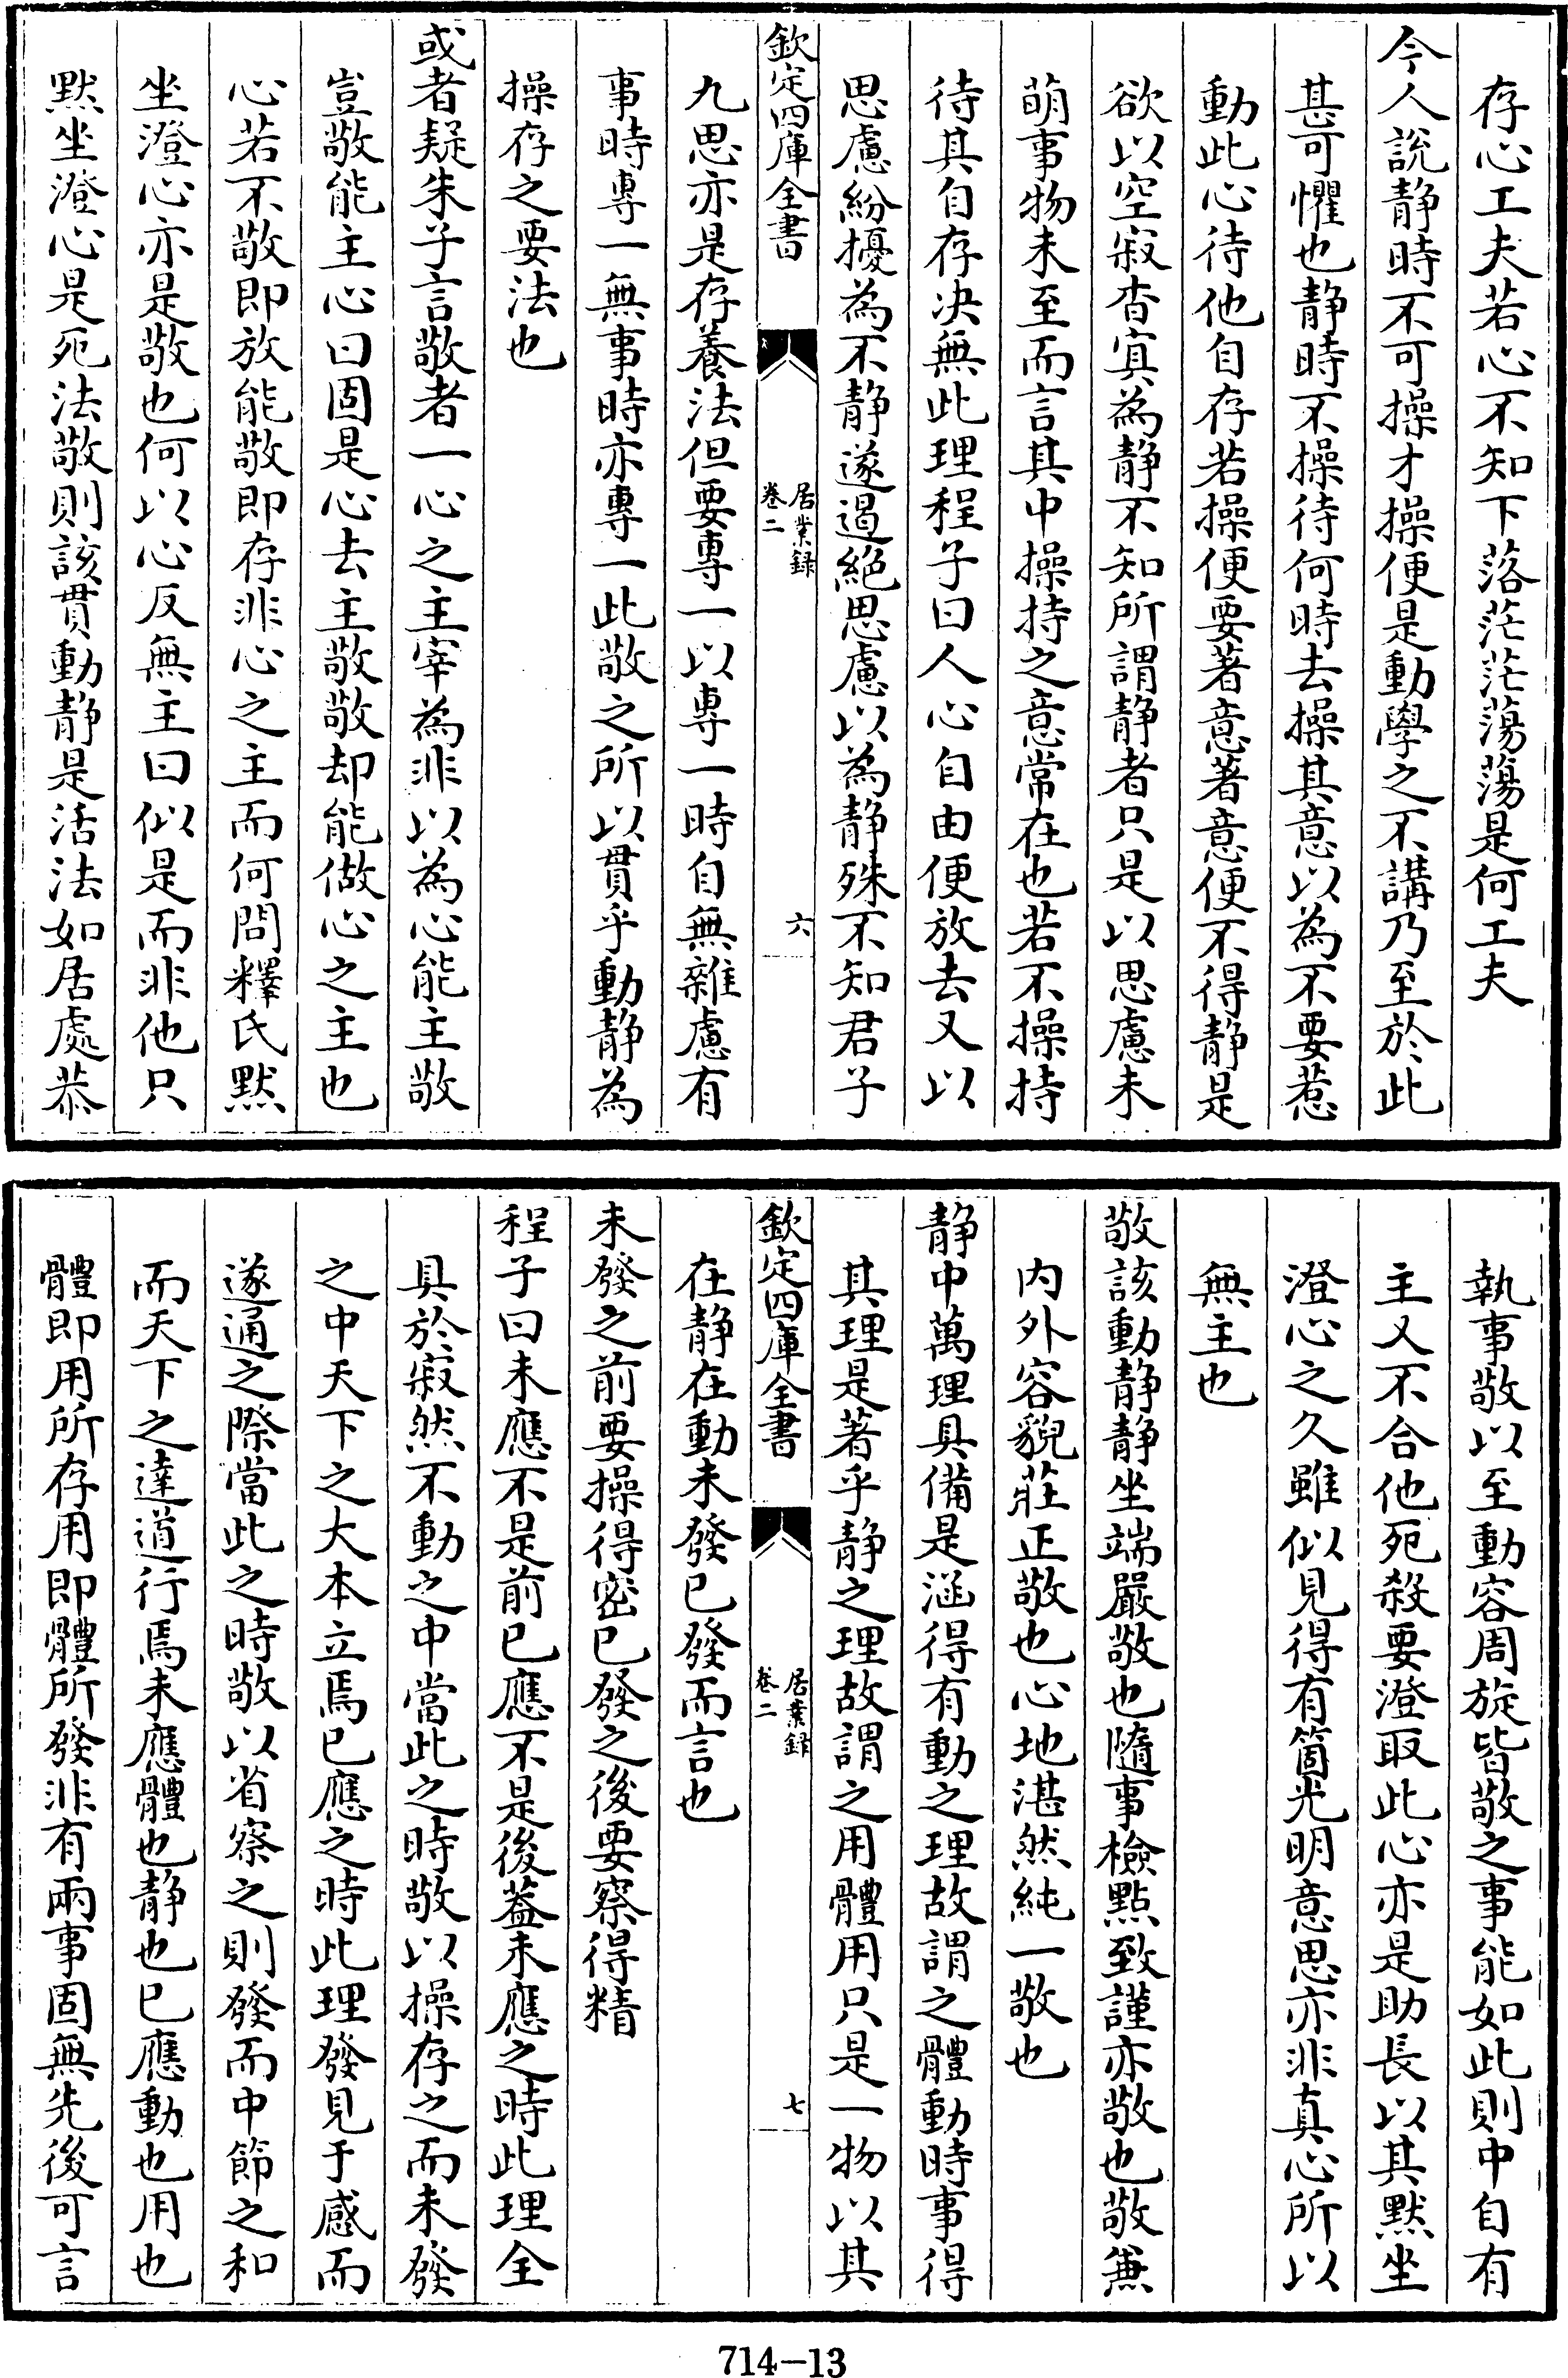 存心工夫若心不知下落茫茫蕩蕩是何工夫
今人說静時不可操才操便是動學之不講乃至於此
甚可懼也静時不操待何時去操其意以為不要惹
動此心待他自存若操便要著意著意便不得静是
欲以空寂杳㝠為静不知所謂静者只是以思慮未
萌事物未至而言其中操持之意常在也若不操持
待其自存决無此理程子曰人心自由便放去又以
思慮紛擾為不静遂遏絕思慮以為静殊不知君子
欽定四庫全書
居業録
卷二
六
九思亦是存養法但要專一以專一時自無雜慮有
事時專一無事時亦專一此敬之所以貫乎動静為
操存之要法也
或者疑朱子言敬者一心之主宰為非以為心能主敬
豈敬能主心曰固是心去主敬敬却能做心之主也
心若不敬即放能敬即存非心之主而何問釋氏黙
坐澄心亦是敬也何以心反無主曰似是而非他只
黙坐澄心是死法敬則該貫動静是活法如居處恭
執事敬以至動容周旋皆敬之事能如此則中自有
主又不合他死殺要澄取此心亦是助長以其黙坐
澄心之久雖似見得有箇光明意思亦非真心所以
無主也
敬該動静静坐端嚴敬也隨事檢點致謹亦敬也敬兼
内外容貌莊正敬也心地湛然純一敬也
静中萬理具備是涵得有動之理故謂之體動時事得
其理是著乎静之理故謂之用體用只是一物以其
欽定四庫全書
居業録
卷二
七
在静在動未發已發而言也
未發之前要操得密已發之後要察得精
程子曰未應不是前已應不是後葢未應之時此理全
具於寂然不動之中當此之時敬以操存之而未發
之中天下之大本立焉已應之時此理發見于感而
遂通之際當此之時敬以省察之則發而中節之和
而天下之達道行焉未應體也静也已應動也用也
體即用所存用即體所發非有兩事固無先後可言
714-13